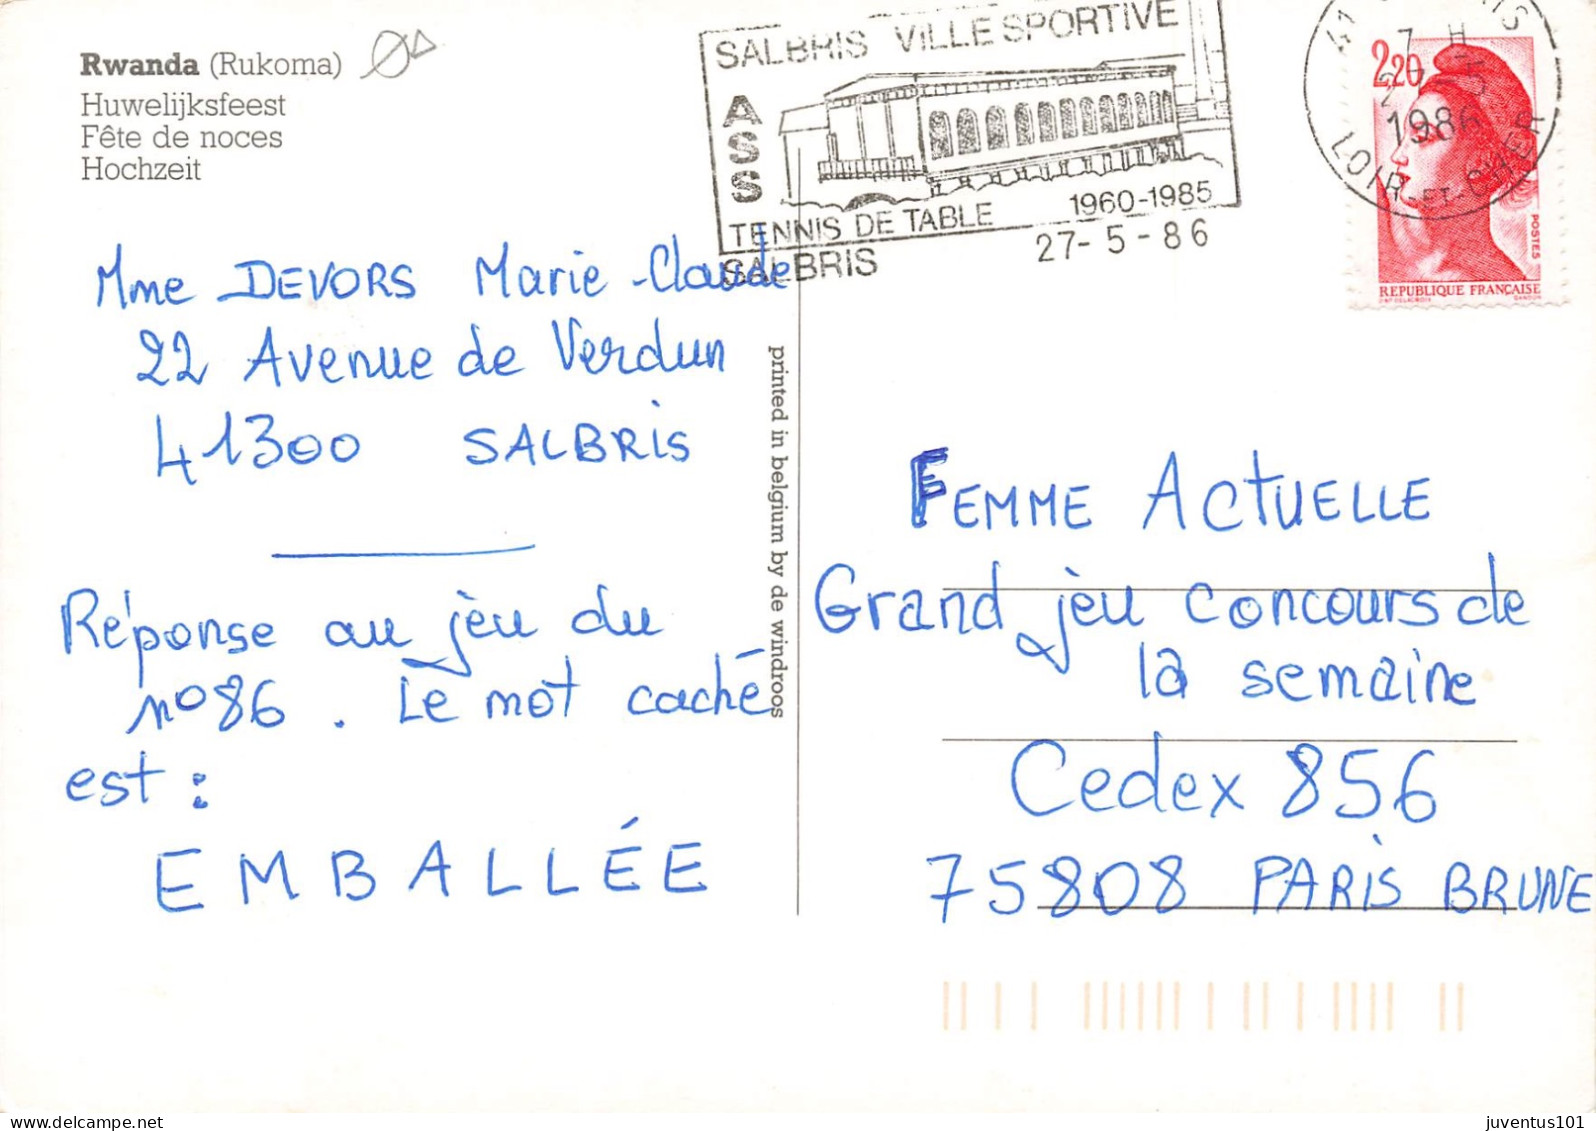 Rwanda (Rukoma)
Huwelijksfeest
Fête de noces
Hochzeit
SALBRIS VILLE SPORTIVE
ASS
TENNIS DE TABLE 1960-1985
SALBRIS 27-5-86
41 
7 H
1986
LOIR-ET-CHER
2,20
POSTES
REPUBLIQUE FRANÇAISE
Mme DEVORS Marie-Claude
22 Avenue de Verdun
41300 SALBRIS
Réponse au jèu du
n°86. Le mot caché
est :
EMBALLÉE
printed in belgium by de windroos
FEMME ACTUELLE
Grand jèu concours de
la semaine
Cedex 856
75808 PARIS BRUNE
juventus101